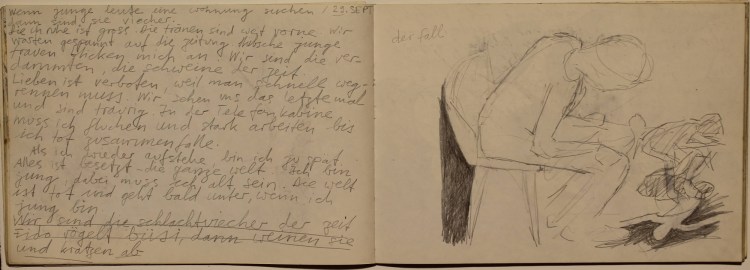 wenn junge leute eine wohnung suchen / 29. SEPT
dann sind sie viecher.
die ruhe ist gross. Die tränen sind weit vorne. Wir
warten gespannt auf die zeitung. Hübsche junge
frauen blicken mich an. Wir sind die ver-
dammten, die schweine der zeit.
Lieben ist verboten, weil man schnell weg-
rennen muss. Wir sehen uns das letzte mal
und sind traurig. In der Telefonkabine
muss ich fluchen und stark arbeiten bis
ich tot zusammenfalle.
Als ich wieder aufstehe, bin ich zu spät.
Alles ist besetzt. die ganze welt. Ich bin
jung, dabei muss ich alt sein. Die welt
ist tot und geht bald unter, wenn ich
jung bin
Wir sind die schlachtviecher der zeit
Fido vögelt büsi, dann weinen sie
und kratzen ab
der fall